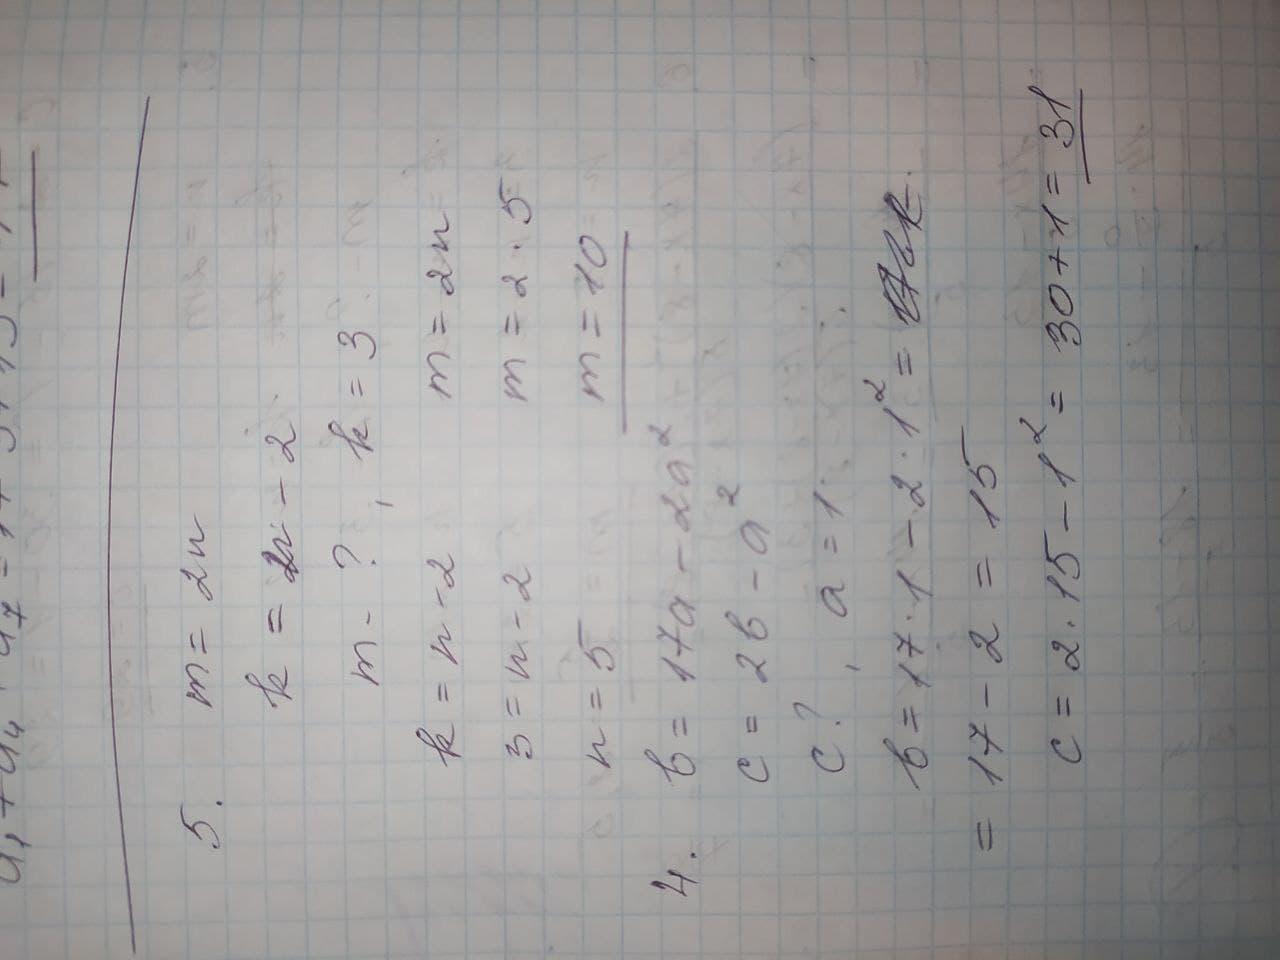 5. m = 2n
k = n - 2
m - ? , k = 3
k = n - 2 m = 2n
3 = n - 2 m = 2 · 5
n = 5 m = 10
4. b = 17a - 2a²
c = 2b - a²
c ? , a = 1
b = 17 · 1 - 2 · 1² =
= 17 - 2 = 15
c = 2 · 15 - 1² = 30 + 1 = 31